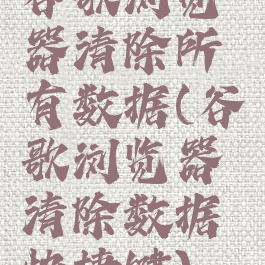 谷歌浏览
器清除所
有数据(谷
歌浏览器
清除数据
快捷键)